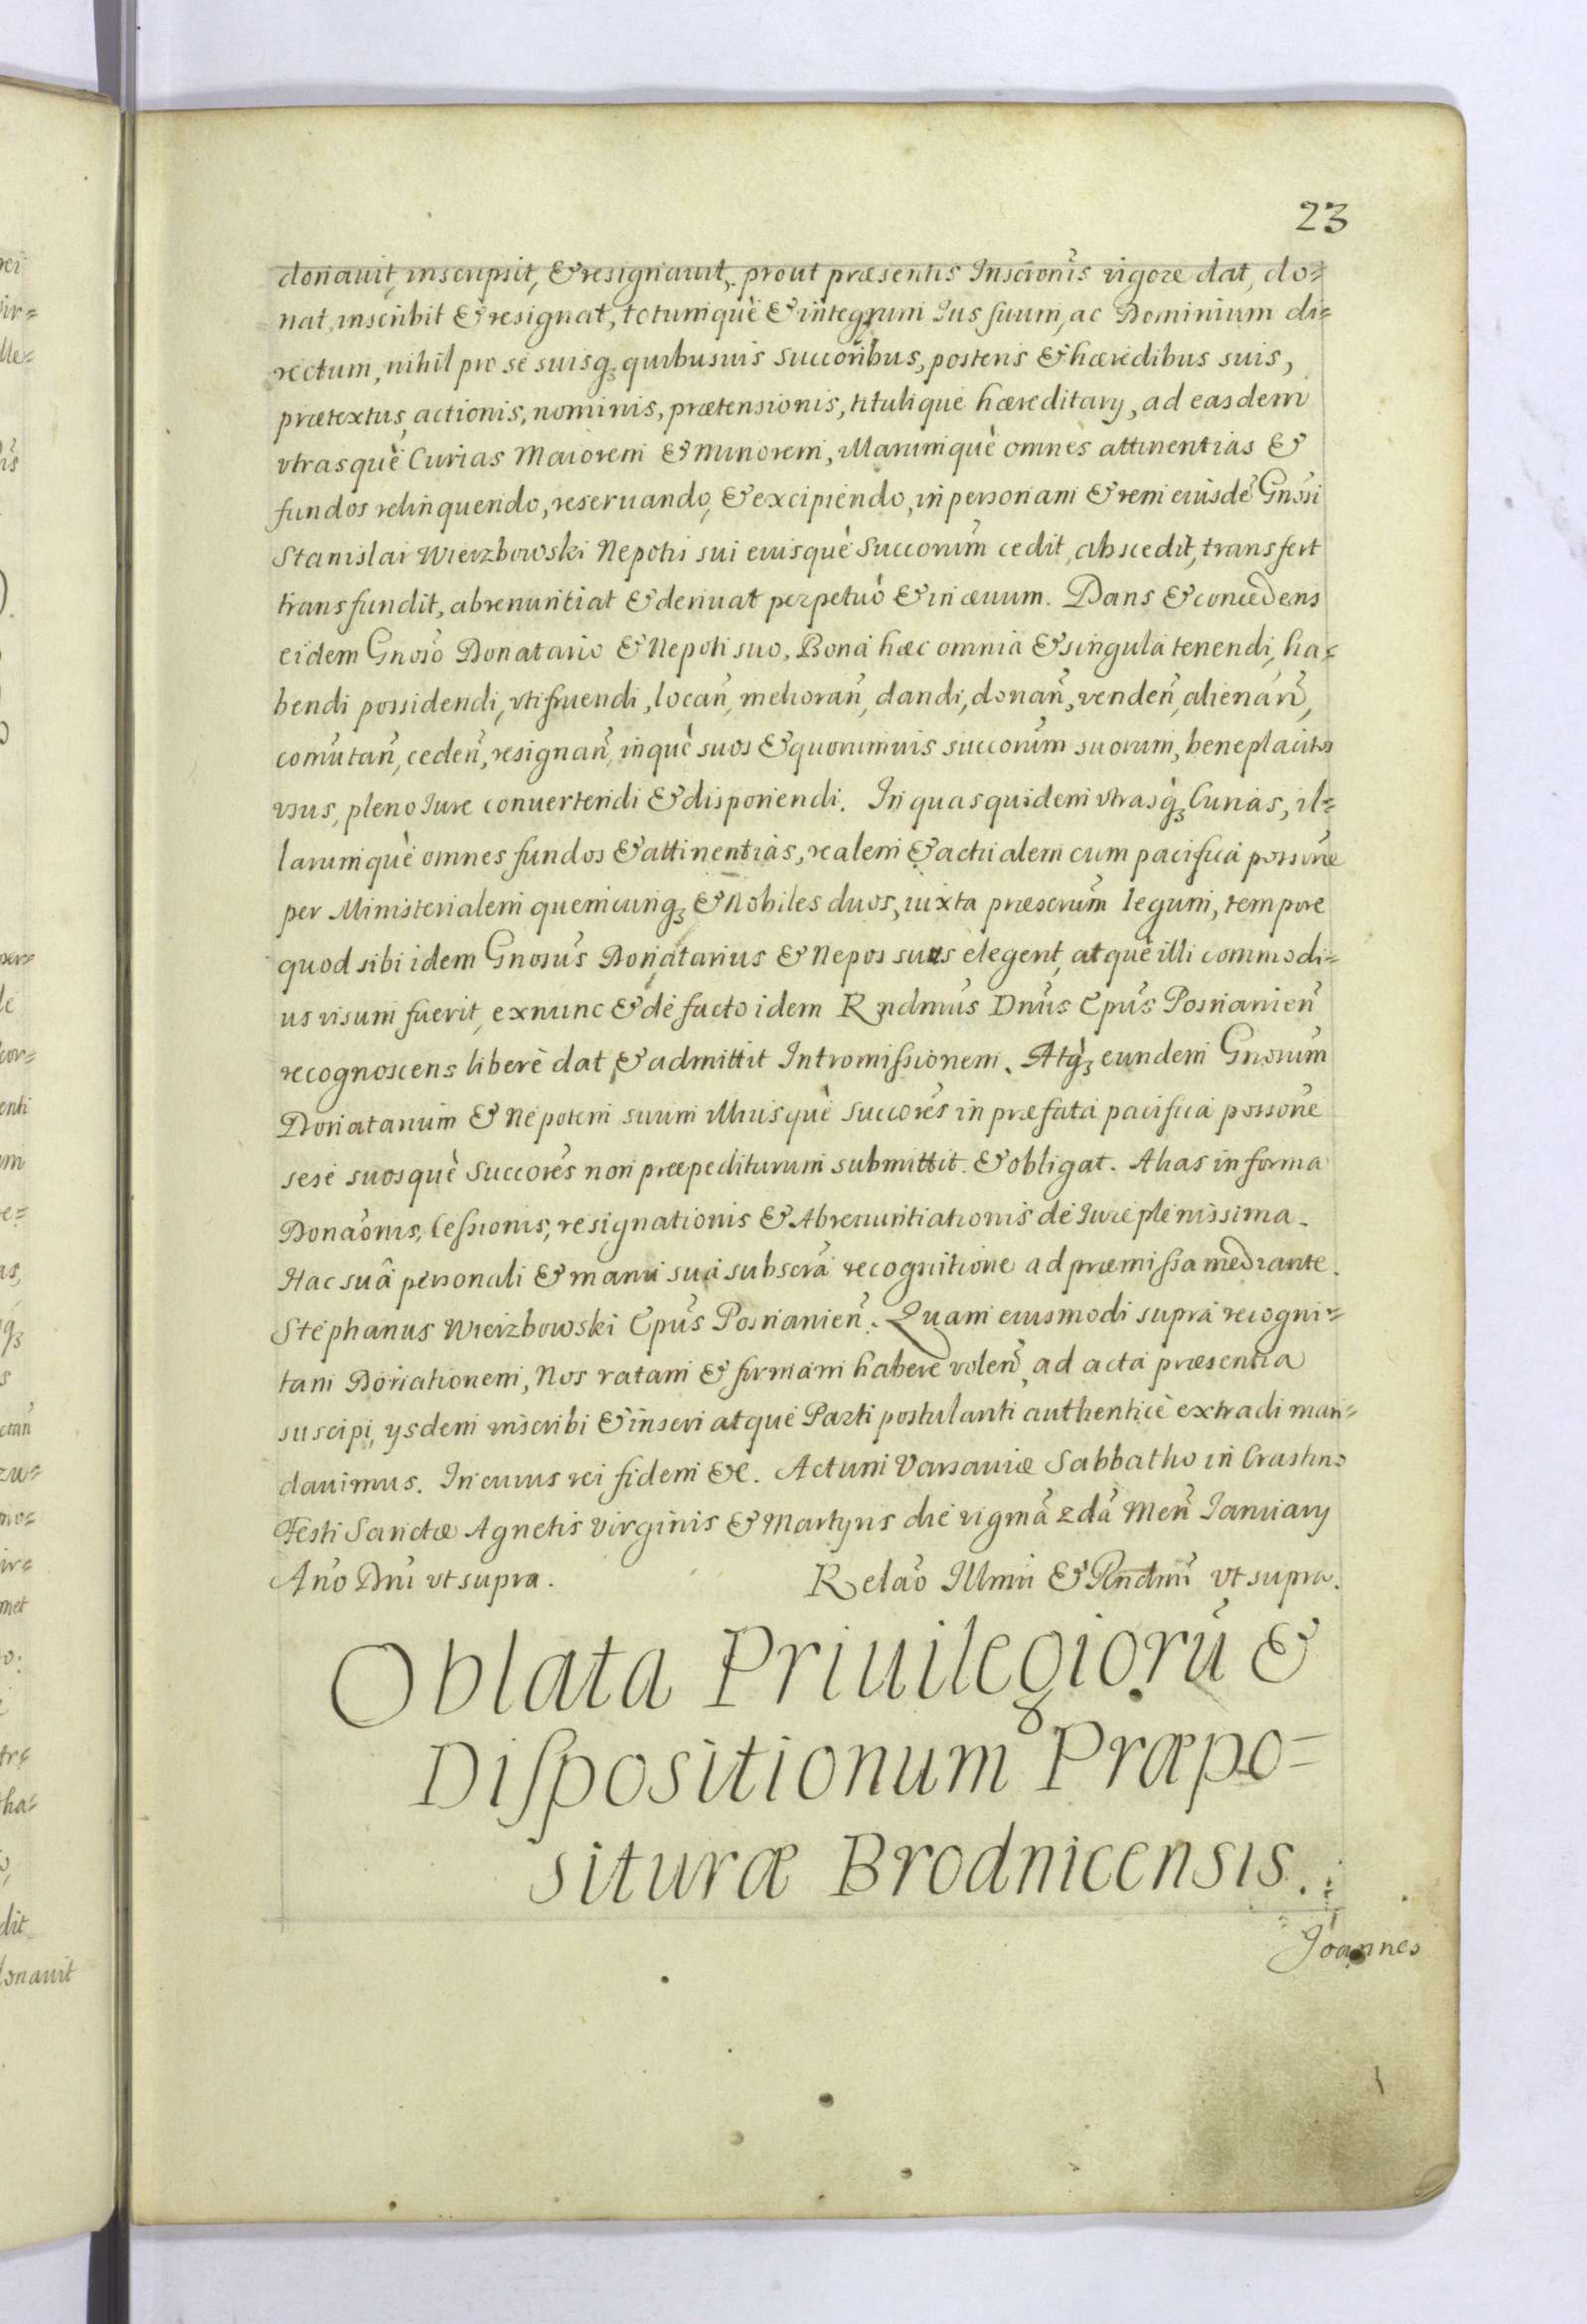 23
donauit, inscripsit, & resignauit, prout præsentis Inscrionis̃ vigore dat, do=
nat, inscribit & resignat, totumquè & integrum Ius suum, ac Dominium di=
rectum, nihil pro se suisq; quibusuis succoribus̃, posteris & hæredibus suis,
prætextus, actionis, nominis, prætensionis, titulique hæreditary, ad easdem
vtrasquè Curias Maiorem & Minorem, illarumquè omnes attinentias &
fundos relinquendo, reseruando, & excipiendo, in personam & rem eiusdẽ Gnosi
Stanislai Wierzbowski Nepotis sui eiusquè Succorum̃ cedit, abscedit, transfert
transfundit, abrenuntiat & deriuat perpetuò & in æuum. Dans & concedens
eidem Gnosõ Donatario & Nepoti suo, Bona hæc omnia & singula tenendi, ha=
bendi possidendi, vtifruendi, locañ, meliorañ, dandi, donañ, vendeñ, alienañ,
com̃utañ, cedeñ, resignañ, inquè suos & quorumuis succorum̃ suorum, beneplacitos
vsus, pleno Iure conuertendi & disponendi. In quas quidem vtrasq; Curias, il=
larumquè omnes fundos & attinentias, realem & actualem cum pacifica possone
per Ministerialem quemcunq; & Nobiles duos, iuxta præscrum̃ legum, tempore
quod sibi idem Gnosus̃ Donatarius & Nepos suus elegerit, atquè illi commodi=
us visum fuerit, exnunc & de facto idem Rndmus̃ Dnus̃ Epus̃ Posnanieñ
recognoscens liberè dat & admittit Intromissionem. Atq; eundem Gnosum̃
Donatarium & Nepotem suum illiusquè succores̃ in præfata pacifica possone
sese suosquè Succores̃ non præpediturum submittit & obligat. Alias in forma
Donãonis, Cessionis, resignationis & Abrenuntiationis de Iure plenissima.
Hac suâ personali & manu sua subscrã recognitione ad præmissa mediante.
Stephanus Wierzbowski Epus̃ Posnanieñ. Quam eiusmodi supra recogni=
tam Donationem, Nos ratam & firmam habere voleñ, ad acta præsentia
suscipi, ysdem inscribi & inseri atque Parti postulanti authenticè extradi man=
dauimus. In cuius rei fidem &c. Actum Varsauiæ Sabbatho in Crastino
Festi Sanctæ Agnetis Virginis & Martyris die vigmã 2dã Meñ January
Anõ Dni vt supra. Relaõ Illmi & Rndmi vt supra.
Oblata Priuilegiorũ &
Dispositionum Præpo=
situræ Brodnicensis.
Joannes